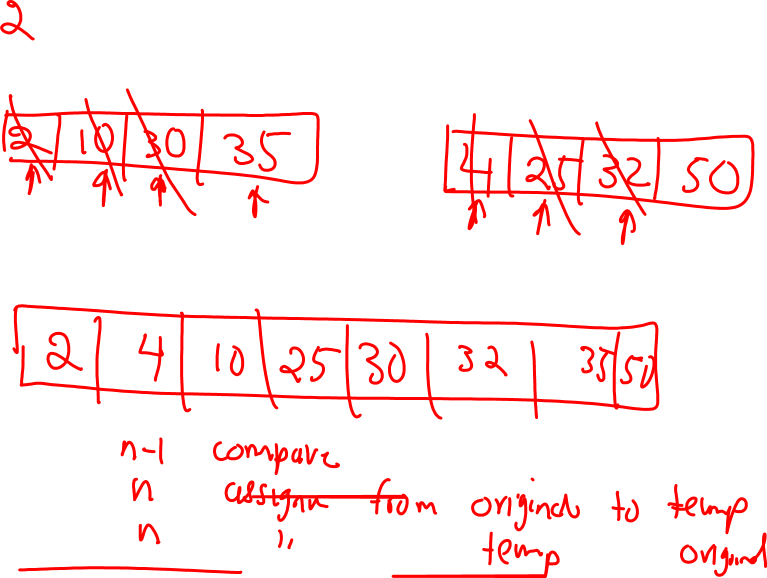 2
2 10 30 35
4 25 32 50
2 4 10 25 30 32 35 50
n-1 compare
n assign from original to temp
n " temp original